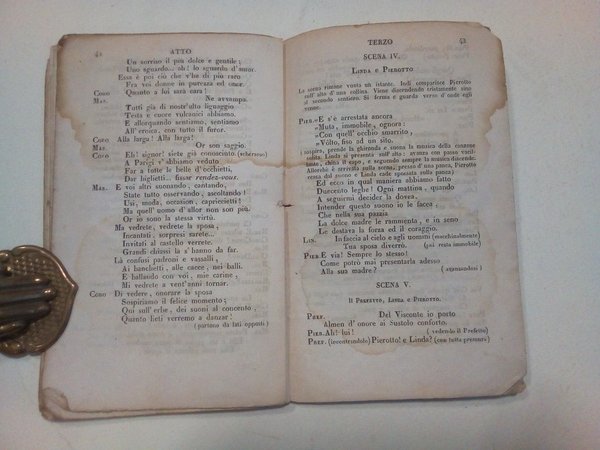 42
ATTO
Un sorriso il più dolce e gentile;
Uno sguardo... oh! lo sguardo d'amor.
Essa è poi ciò che v'ha di più raro
Fra voi donne in purezza ed onor.
CORO Quanto a lui sarà cara!
MAR. Ne avvampo.
Tutti già di nostr'alto lignaggio
Testa e cuore vulcanici abbiamo.
E allorquando sentiamo, sentiamo
All'eroica, con tutto il furor.
CORO Alla larga! Alla larga!
MAR. Or son saggio.
CORO Eh! signor! siete già conosciuto. (scherzose)
A Parigi v'abbiamo veduto
Far a tutte le belle d'occhietti,
Dar biglietti.. fissar rendez-vous.
MAR. E voi altri suonando, cantando,
State tutto osservando, ascoltando.
Usi, moda, occasion, capriccietti!
Ma quell'uomo d'allor non son più.
Or io sono la stessa virtù.
Ma vedrete, vedrete la sposa,
Incantati, sorpresi sarete..
Invitati al castello verrete.
Grandi chiassi là s'hanno da far.
Là confusi padroni e vassalli,
Ai banchetti, alle cacce, nei balli.
E ballando con voi, mie carine,
Mi vedrete a vent'anni tornar.
CORO Di vedere, onorare la sposa
Sospiriamo il felice momento;
Qui sull'erbe, dei suoni al concento,
Quanto lieti verremo a danzar!
(partono da lati opposti)
TERZO
SCENA IV.
LINDA e PIEROTTO
La scena rimane vuota un istante. Indi comparisce Pierotto
sull'alto d'una collina. Viene discendendo tristamente sino
al secondo sentiero. Si ferma e guarda verso d'onde egli
venne.
PIER. E s'è arrestata ancora
„Muta, immobile, ognora:
„Con quell'occhio smarrito,
„Volto, fiso ad un sito.
(sospira, prende la ghironda e suona la musica della canzone
Linda si presenta sull'alto: avanza con passo
china il capo, e seguendo sempre la musica discende
Allorché è arrivata sulla scena, presso d'una panca, Pierotto
cessa dal suono e Linda cade spossata sulla panca)
Ed ecco in qual maniera abbiamo fatto
Duecento leghe! Ogni mattina, quando
A seguirmi decider la dovea,
Intender questo suono io le facea;
Che nella sua pazzia
La dolce madre le rammenta, e in seno
Le destava la forza ed il coraggio.
LIN. In faccia al cielo e agli uomini (macchinalmente)
Tua sposa diverrò. (poi resta immobile)
PIER. E via! Sempre lo stesso!
Come potrò mai presentarla adesso
Alla sua madre? (
SCENA V.
Il PREFETTO, LINDA e PIEROTTO.
PREF. Del Visconte io porto
Almen d'onore ai Sustolo conforto.
PIER. Ah! lui! (vedendo il Prefetto)
PREF. (riconoscendolo) Pierotto! e Linda? (con tutta premura)